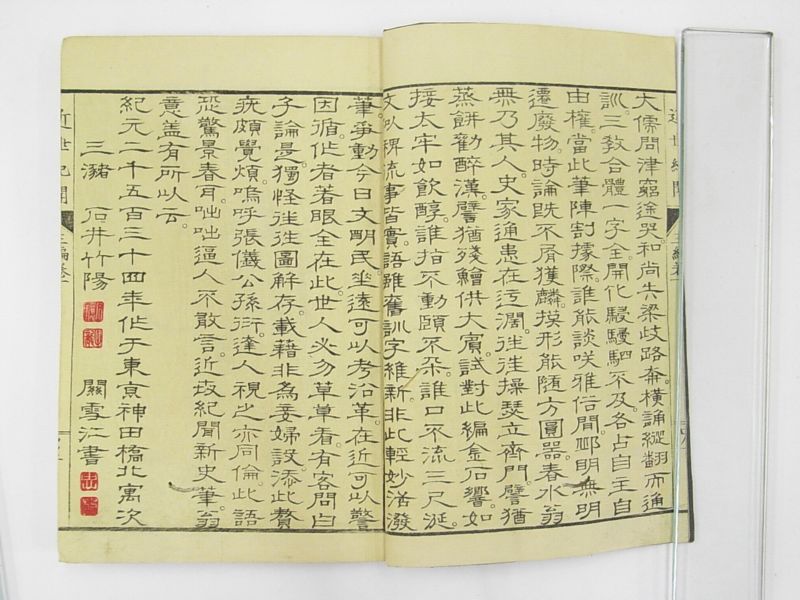 大儒問津窮途哭。和尚失梁歧路奔。橫誦縱翻而通
訓。三教合體一字全。開化駸駸駟不及。各占自主自
由權。當此筆陣割據際。誰能談咲雅俗間。邨明無明
遷廢物。時論既不屑獲麟。摸形能随方圓器。春水翁
無乃其人。史家通患在迂濶。往往操瑟立齊門。譬猶
蒸餅勸醉漢。譬猶殘鱠供大賓。試對此編金石響。如
接太牢如飲醇。誰指不動頤不朶。誰口不流三尺涎。
文以稗流事皆實。語雖舊訓字維新。非此輕妙活潑
筆。爭動今日文明民。坐遠可以考沿革。在近可以警
因循。作者著眼全在此。世人必勿草草看。有客問白
子論是。獨怪往往圖解存。載藉非為妾婦設。添此贅
疣頗覺煩。嗚呼張儀公孫衍。達人視之亦同倫。此語
恐驚景春耳。咄咄逼人不敢言。近故紀聞新史筆。翁
意盖有所以云。
紀元二千五百三十四年作于東京神田橋北寓次
三瀦 石井竹陽
關雪江書
近世紀聞 三編卷一